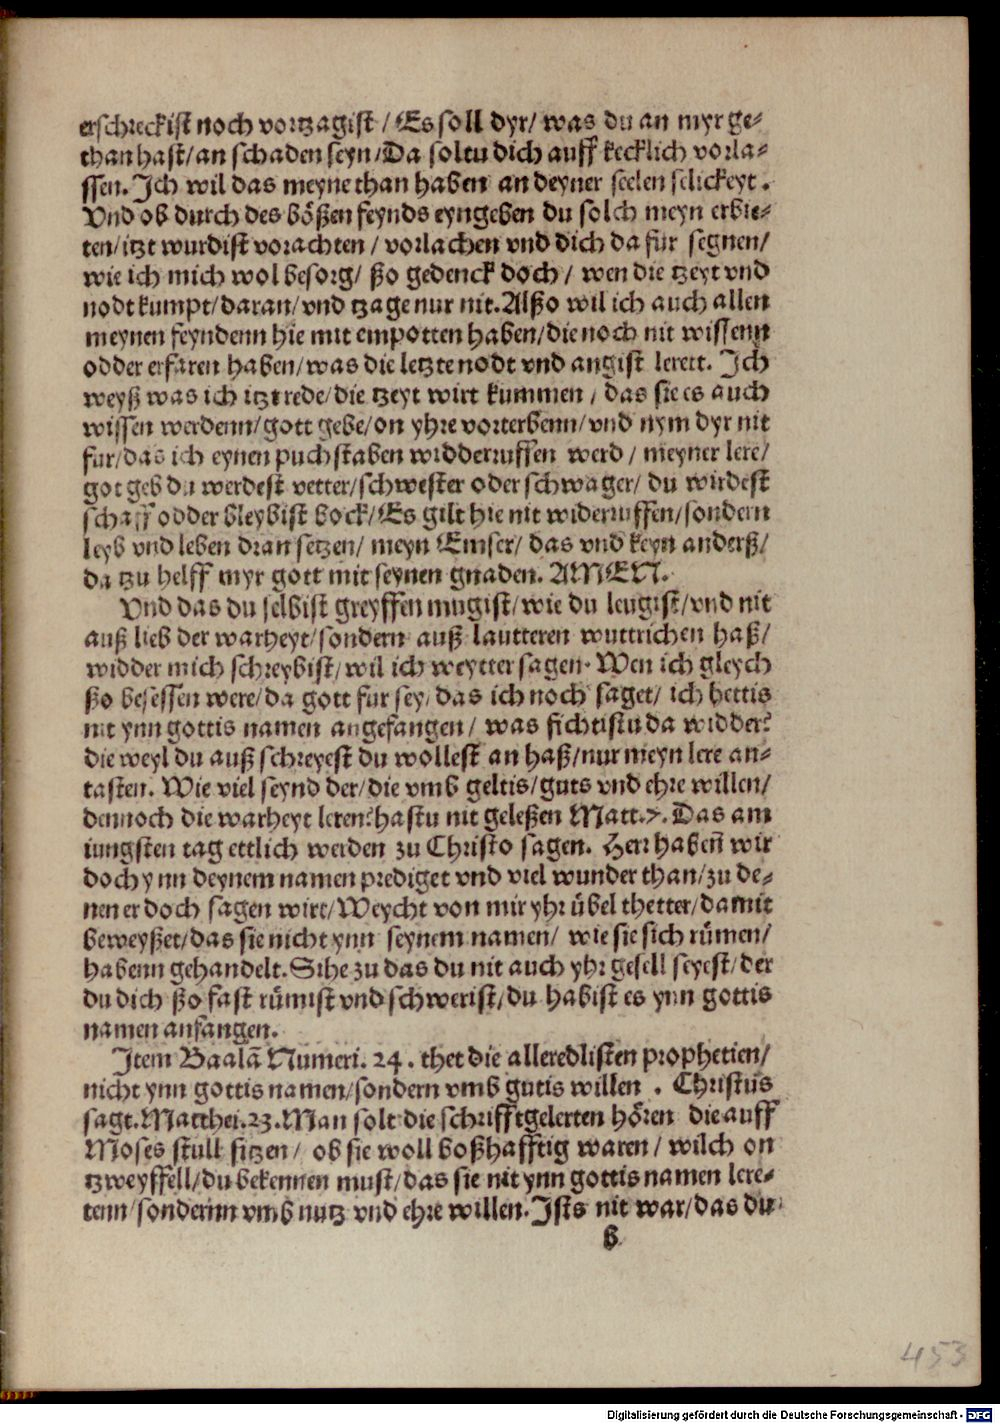 erschreckist noch vortzagist / Es soll dyr/ was du an myr ge-
than hast/ an schaden seyn/ Da soltu dich auff kecklich vorla-
ssen. Ich wil das meyne than haben an deyner seelen selickeyt.
Vnd ob durch des bößen feynds eyngeben du solch meyn erbie-
ten/ itzt wurdist vorachten / vorlachen vnd dich da fur segnen/
wie ich mich wol besorg/ ßo gedenck doch / wen die tzeyt vnd
nodt kumpt/ daran/ vnd tzage nur nit. Alßo wil ich auch allen
meynen feyndenn hie mit empotten haben/ die noch nit wissenn
odder erfaren haben/ was die letzte nodt vnd angist lerett. Ich
weyß was ich itzt rede/ die tzeyt wirt kummen / das sie es auch
wissen werdenn/ gott gebe/ on yhre vorterbenn/ vnd nym dyr nit
fur/ das ich eynen puchstaben widderruffen werd / meyner lere/
got geb du werdest vetter/ schwester oder schwager/ du wirdest
schaff odder bleybist bock/ Es gilt hie nit widerruffen/ sondern
leyb vnd leben dran setzen/ meyn Emser/ das vnd keyn anderß/
da tzu helff myr gott mit seynen gnaden. AMEN.
Vnd das du selbist greyffen mugist/ wie du leugist/ vnd nit
auß lieb der warheyt/ sondern auß lautteren wuttrichen haß/
widder mich schreybist/ wil ich weytter sagen. Wen ich gleych
ßo besessen were/ da gott fur sey/ das ich noch saget/ ich hettis
nit ynn gottis namen angefangen/ was fichtistu da widder?
die weyl du auß schreyest du wollest an haß/ nur meyn lere an-
tasten. Wie viel seynd der/ die vmb geltis/ guts vnd ehre willen/
dennoch die warheyt leren? hastu nit geleßen Matt.7. Das am
iungsten tag ettlich werden zu Christo sagen. Herr habeñ wir
doch ynn deynem namen prediget vnd viel wunder than/ zu de-
nen er doch sagen wirt/ Weycht von mir yhr übel thetter/ damit
beweyßet/ das sie nicht ynn seynem namen/ wie sie sich rümen/
habenn gehandelt. Sihe zu das du nit auch yhr gesell seyest/ der
du dich ßo fast rümist vnd schwerist/ du habist es ynn gottis
namen anfangen.
Item Baalã Numeri. 24. thet die alleredlisten prophetien/
nicht ynn gottis namen/ sondern vmb gutis willen . Christus
sagt. Matthei.23. Man solt die schrifftgelerten hören die auff
Moses stull sitzen/ ob sie woll boßhafftig waren/ wilch on
tzweyffell/ du bekennen must/ das sie nit ynn gottis namen lere-
tenn/ sonderinn vmb nutz vnd ehre willen. Ists nit war/ das du
b
453
Digitalisierung gefördert durch die Deutsche Forschungsgemeinschaft - DFG